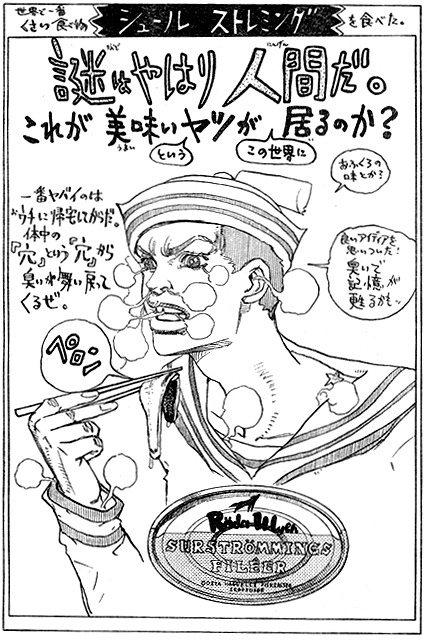 世界で一番
くさい食べ物
シュール ストレミング
を食べた。
謎はやはり 人間だ。
なぞ
にんげん
これが 美味いヤツが 居るのか?
うまい
という
この世界に
おふくろの
味とか?
良いアイディアを
思いついた!
臭いで
記憶が
甦るかも〜
一番ヤバイのは
おウチに帰宅してからだ。
体中の
『穴』という『穴』から
臭いが舞い戻って
くるぜ。
ペロン
Röda Ulven
SURSTRÖMMINGS
FILÉER